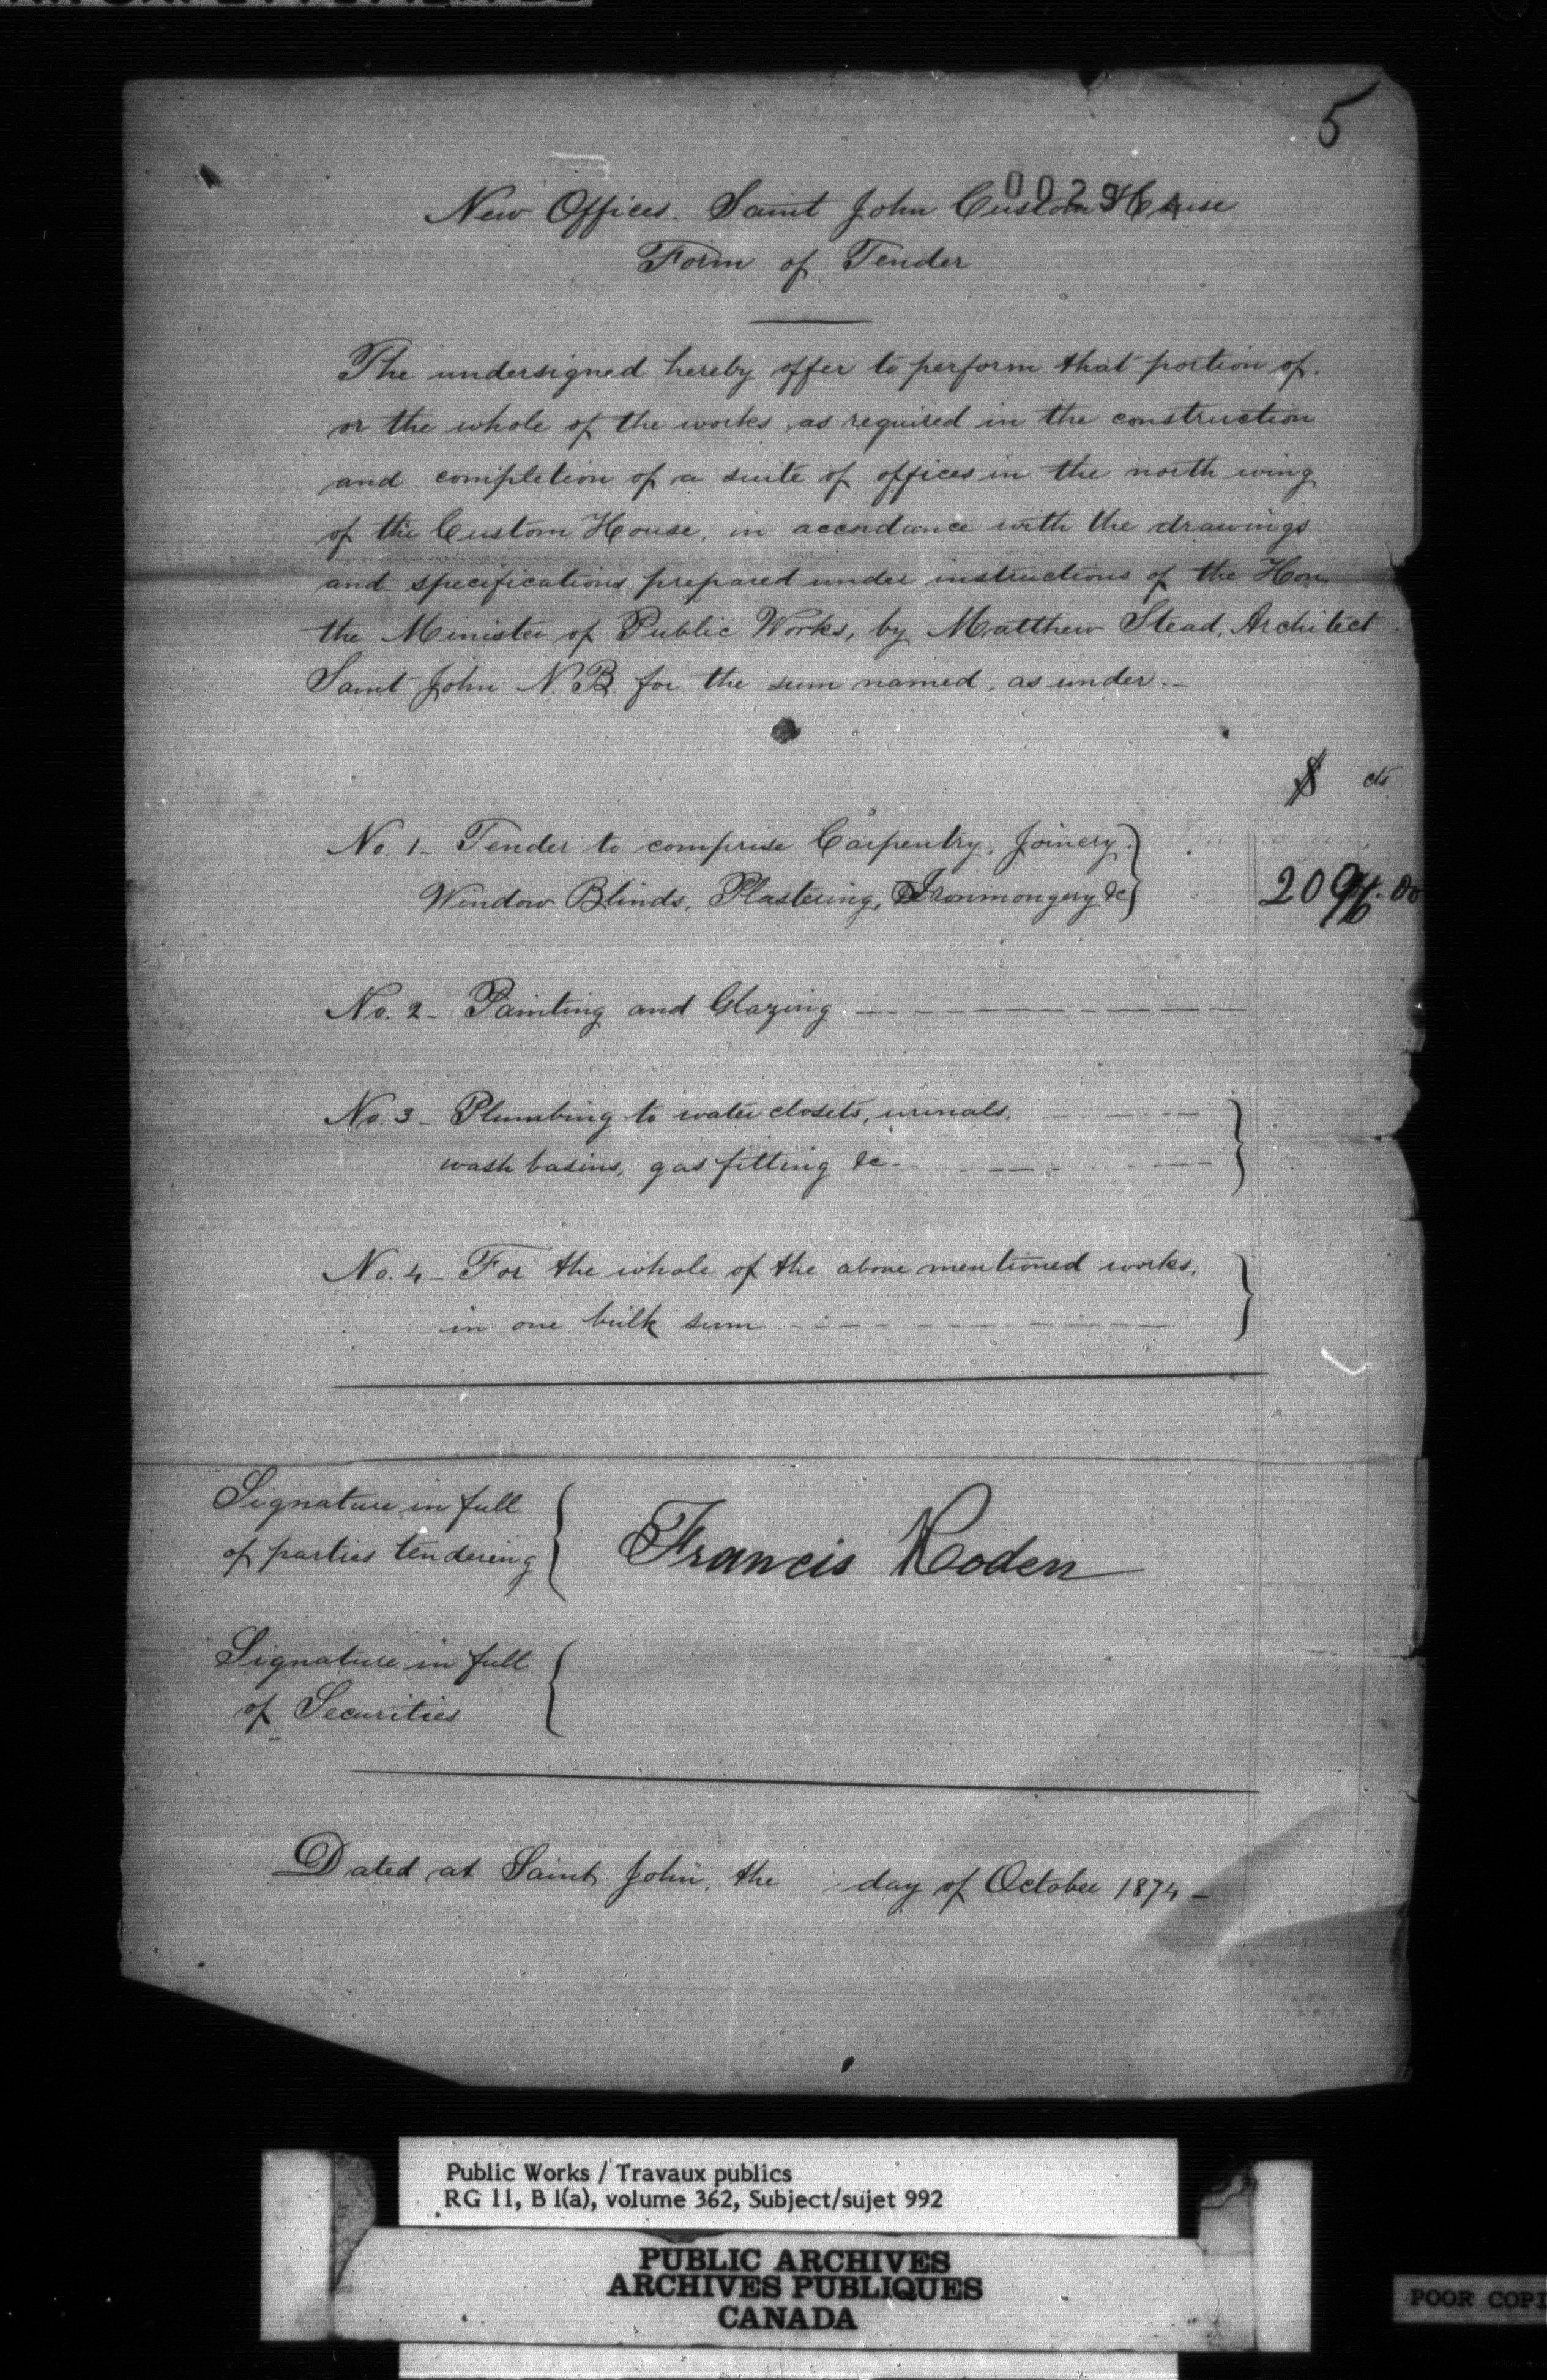 5
New Offices. Saint John Custom House
Form of Tender
The undersigned hereby offer to perform that portion of,
or the whole of the works, as required in the construction
and completion of a suite of offices in the north wing
of the Custom House, in accordance with the drawings
and specifications prepared under instructions of the Hon.
the Minister of Public Works, by Matthew Stead, Architect
Saint John N.B. for the sum named, as under.-
$ cts
No. 1- Tender to comprise Carpentry, Joinery,
Window Blinds, Plastering, Ironmongery &c
2096.00
No. 2- Painting and Glazing
No. 3- Plumbing to water closets, urinals,
wash basins, gas fitting &c
No. 4- For the whole of the above mentioned works,
in one bulk sum
Signature in full
of parties tendering
Francis Roden
Signature in full
of Securities
Dated at Saint John, the day of October 1874-
Public Works / Travaux publics
RG 11, B 1(a), volume 362, Subject/sujet 992
PUBLIC ARCHIVES
ARCHIVES PUBLIQUES
CANADA
POOR COPI